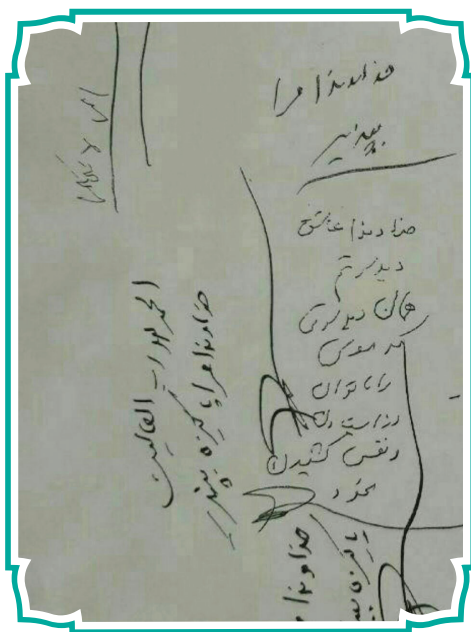 خداوندا مرا
بپذیر
خداوندا عاشق
دیدارتم
همان دیداری
که موسی
را ناتوان
از ایستادن
و نفس کشیدن
نمود
الحمدلله رب العالمین
خداوندا مرا پاکیزه بپذیر
خداوندا
پاکیزه